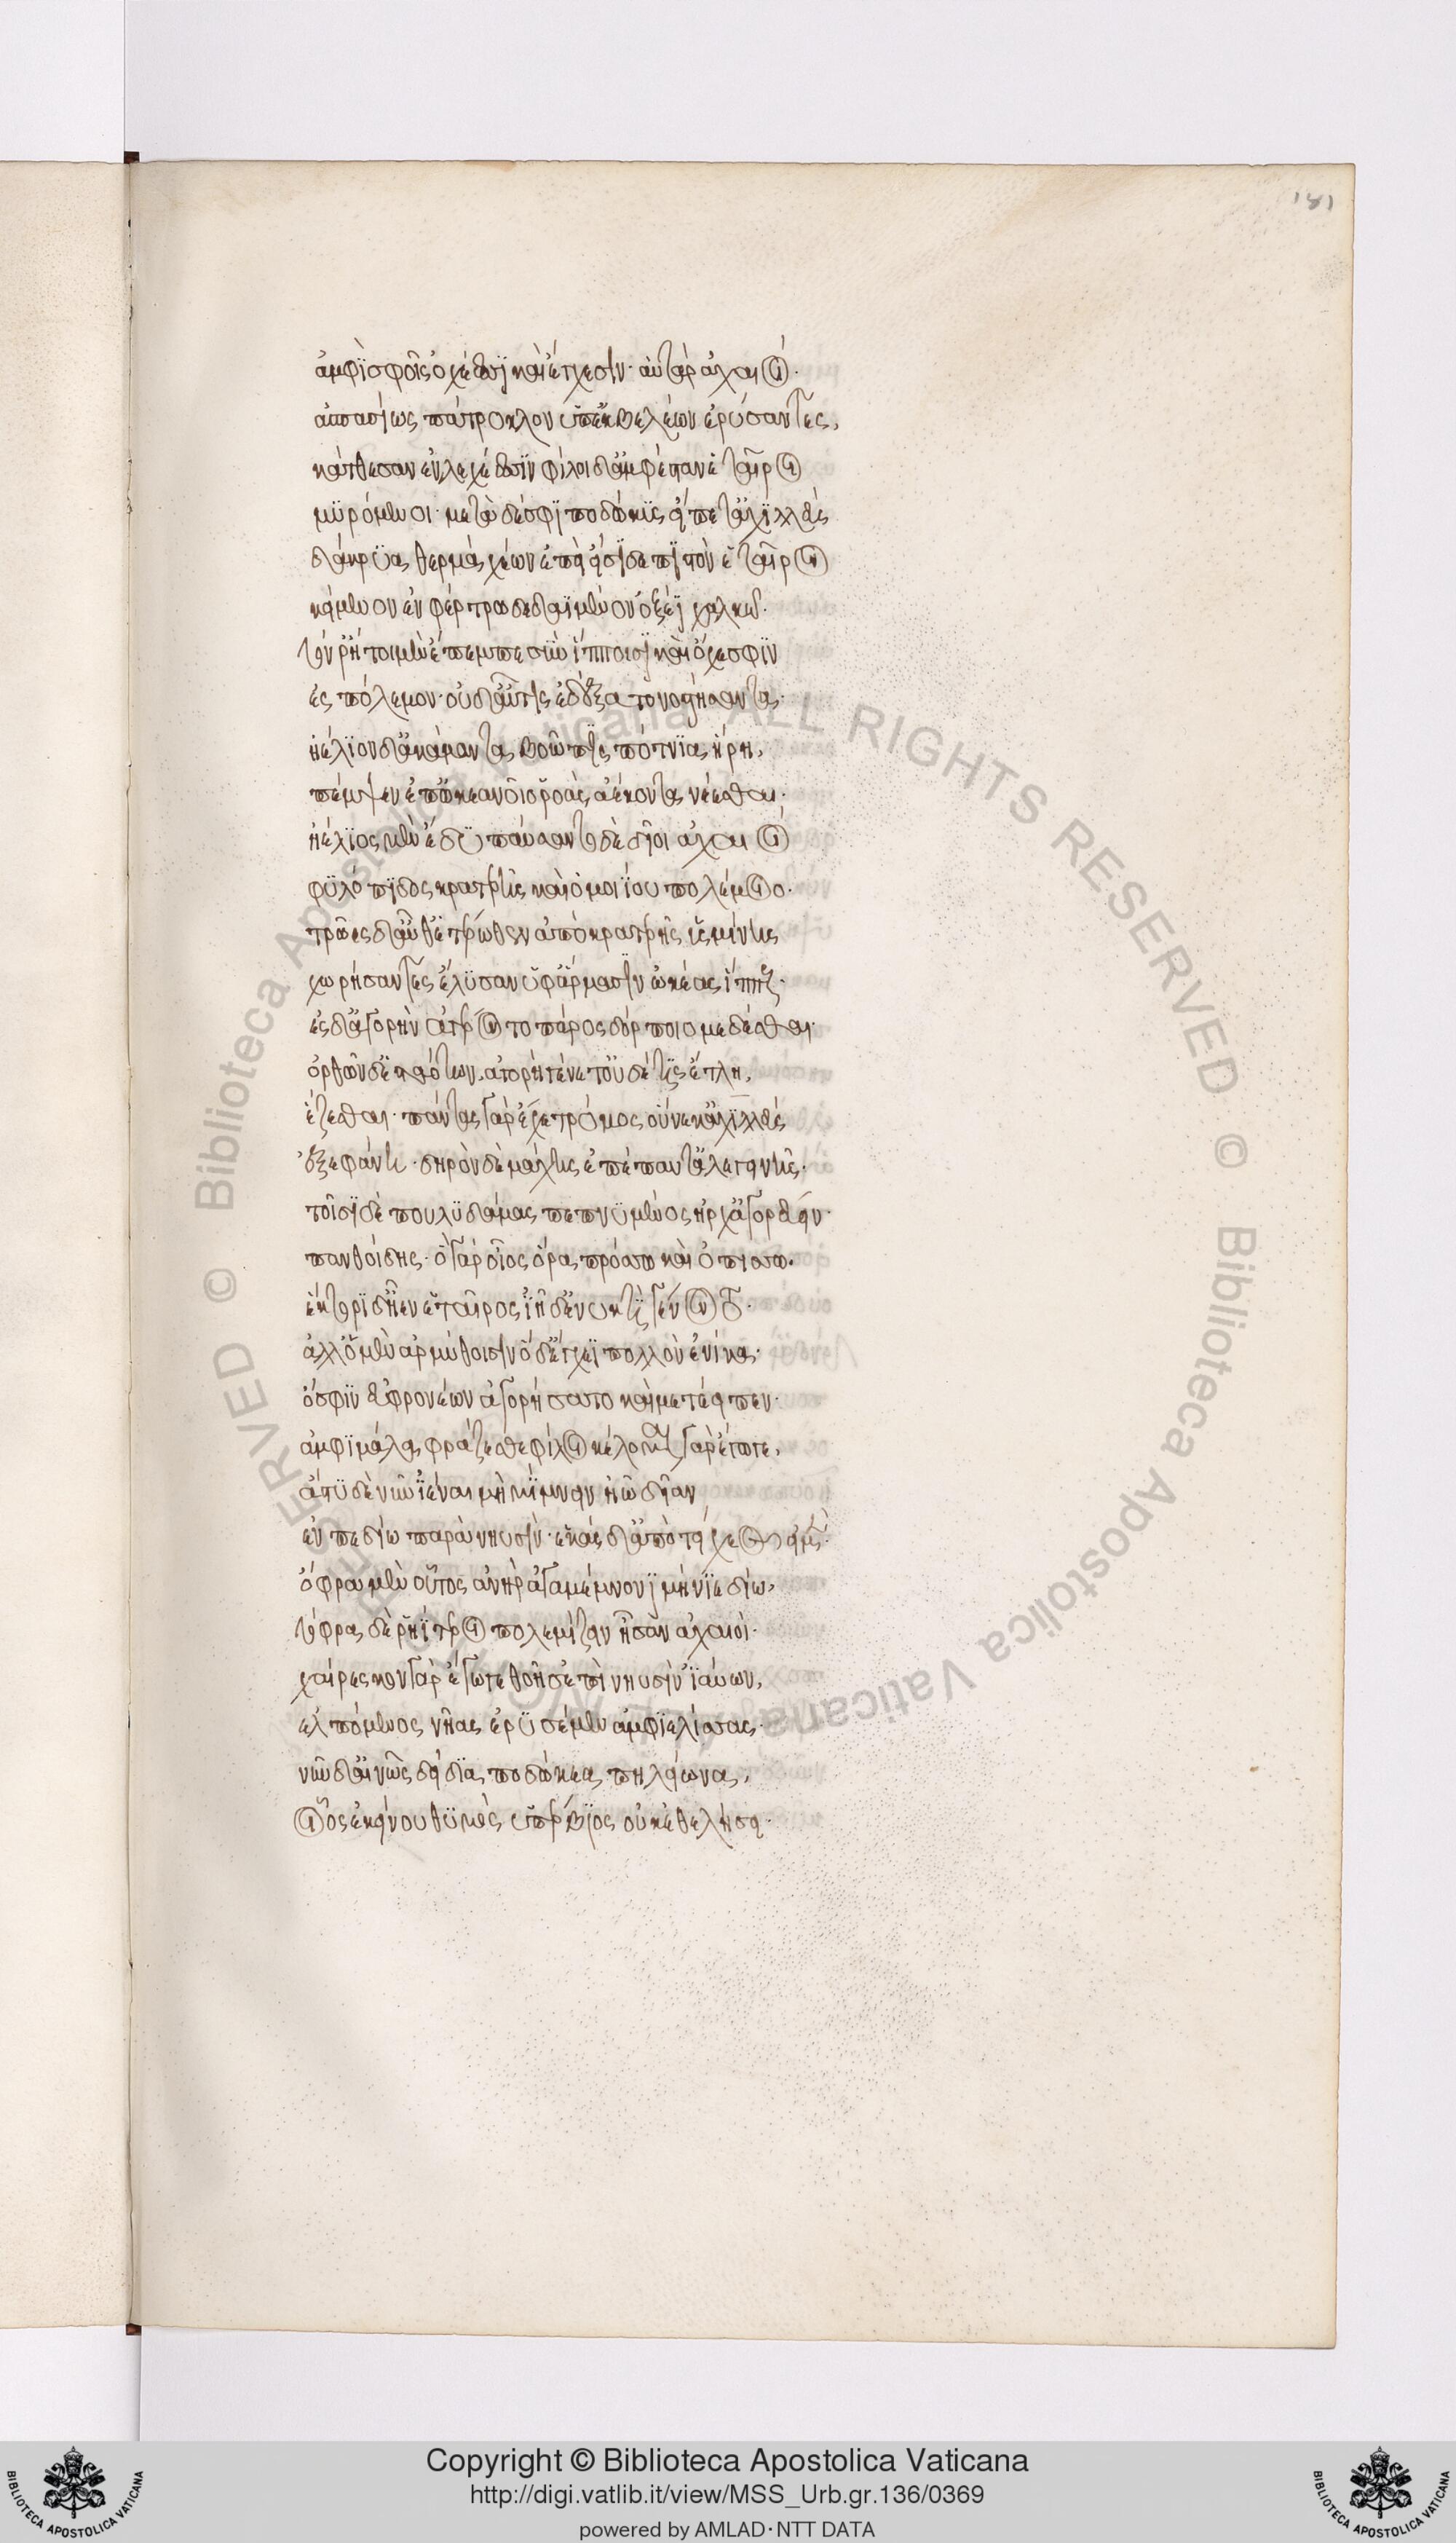 181
ἀμφὶ σφοῖς ὀχέεσσι καὶ ἔγχεσιν· αὐτὰρ ἀχαιοί·
ἀσπασίως πάτροκλον ὑπὲκ βελέων ἐρύσαντες,
κάτθεσαν ἐν λεχέεσσιν φίλοι δ' ἀμφέσταν ἑταῖροι
μυρόμενοι· μετὰ δέ σφι ποδώκης εἵπετ' ἀχιλλεύς
δάκρυα θερμὰ χέων ἐπεὶ εἴσιδε πιστὸν ἑταῖρον
κείμενον ἐν φέρτρω δεδαϊγμένον ὀξέϊ χαλκῶ·
τόν ῥ' ἤτοι μὲν ἔπεμπε σὺν ἵπποισι καὶ ὄχεσφιν
ἐς πόλεμον· οὐδ' αὖτις ἐδέξατο νοστήσαντα·
ἠέλιον δ' ἀκάμαντα βοῶπις πότνια ἥρη,
πέμψεν ἐπ' ὠκεανοῖο ῥοὰς ἀέκοντα νέεσθαι·
ἠέλιος μὲν ἔδυ παύσαντο δὲ δῖοι ἀχαιοί
φυλόπιδος κρατερῆς καὶ ὁμοιΐου πολέμοιο·
τρῶες δ' αὖθ' ἑτέρωθεν ἀπὸ κρατερῆς ὑσμίνης
χωρήσαντες ἔλυσαν ὑφ' ἅρμασιν ὠκέας ἵππους·
ἐς δ' ἀγορὴν ἀγέροντο πάρος δόρποιο μέδεσθαι·
ὀρθῶν δ' ἑσταότων ἀγορὴ γένετ' οὐδέ τις ἔτλη,
ἕζεσθαι· πάντας γὰρ ἔχε τρόμος οὕνεκ' ἀχιλλεύς
ἐξεφάνη· δηρὸν δὲ μάχης ἐπέπαυτ' ἀλεγεινῆς·
τοῖσι δὲ πουλυδάμας πεπνυμένος ἦρχ' ἀγορεύειν·
πανθοίδης· ὃ γὰρ οἶος ὅρα πρόσσω καὶ ὀπίσσω·
ἕκτορι δ' ἦεν ἑταῖρος ἰῆ δ' ἐν νυκτὶ γένοντο·
ἀλλ' ὃ μὲν ἂρ μύθοισιν ὃ δ' ἔγχεϊ πολλὸν ἐνίκα·
ὅ σφιν ἐϋφρονέων ἀγορήσατο καὶ μετέειπεν·
ἀμφὶ μάλα φράζεσθε φίλοι κέλομαι γὰρ ἔγωγε,
ἄστυδε νῦν ἰέναι μὴ μίμνειν ἠῶ δῖαν
ἐν πεδίω παρὰ νηυσίν· ἑκὰς δ' ἀπὸ τείχεός εἰμεν·
ὄφρα μὲν οὗτος ἀνὴρ ἀγαμέμνονι μήνιε δίω,
τόφρα δὲ ῥηΐτεροι πολεμίζειν ἦσαν ἀχαιοί·
χαίρεσκον γὰρ ἔγωγε θοῆς ἐπὶ νηυσὶν ἰαύων,
ἐλπόμενος νῆας ἐρυσέμεν ἀμφιελίσσας·
νῦν δ' αἰνῶς δείδια ποδώκεα πηλείωνα,
οἷος ἐκείνου θυμὸς ὑπέρβιος οὐκ ἐθελήσει·
© Biblioteca Apostolica Vaticana ALL RIGHTS RESERVED
© Biblioteca Apostolica Vaticana ALL RIGHTS RESERVED
Copyright © Biblioteca Apostolica Vaticana
http://digi.vatlib.it/view/MSS_Urb.gr.136/0369
powered by AMLAD·NTT DATA
BIBLIOTECA APOSTOLICA VATICANA
BIBLIOTECA APOSTOLICA VATICANA